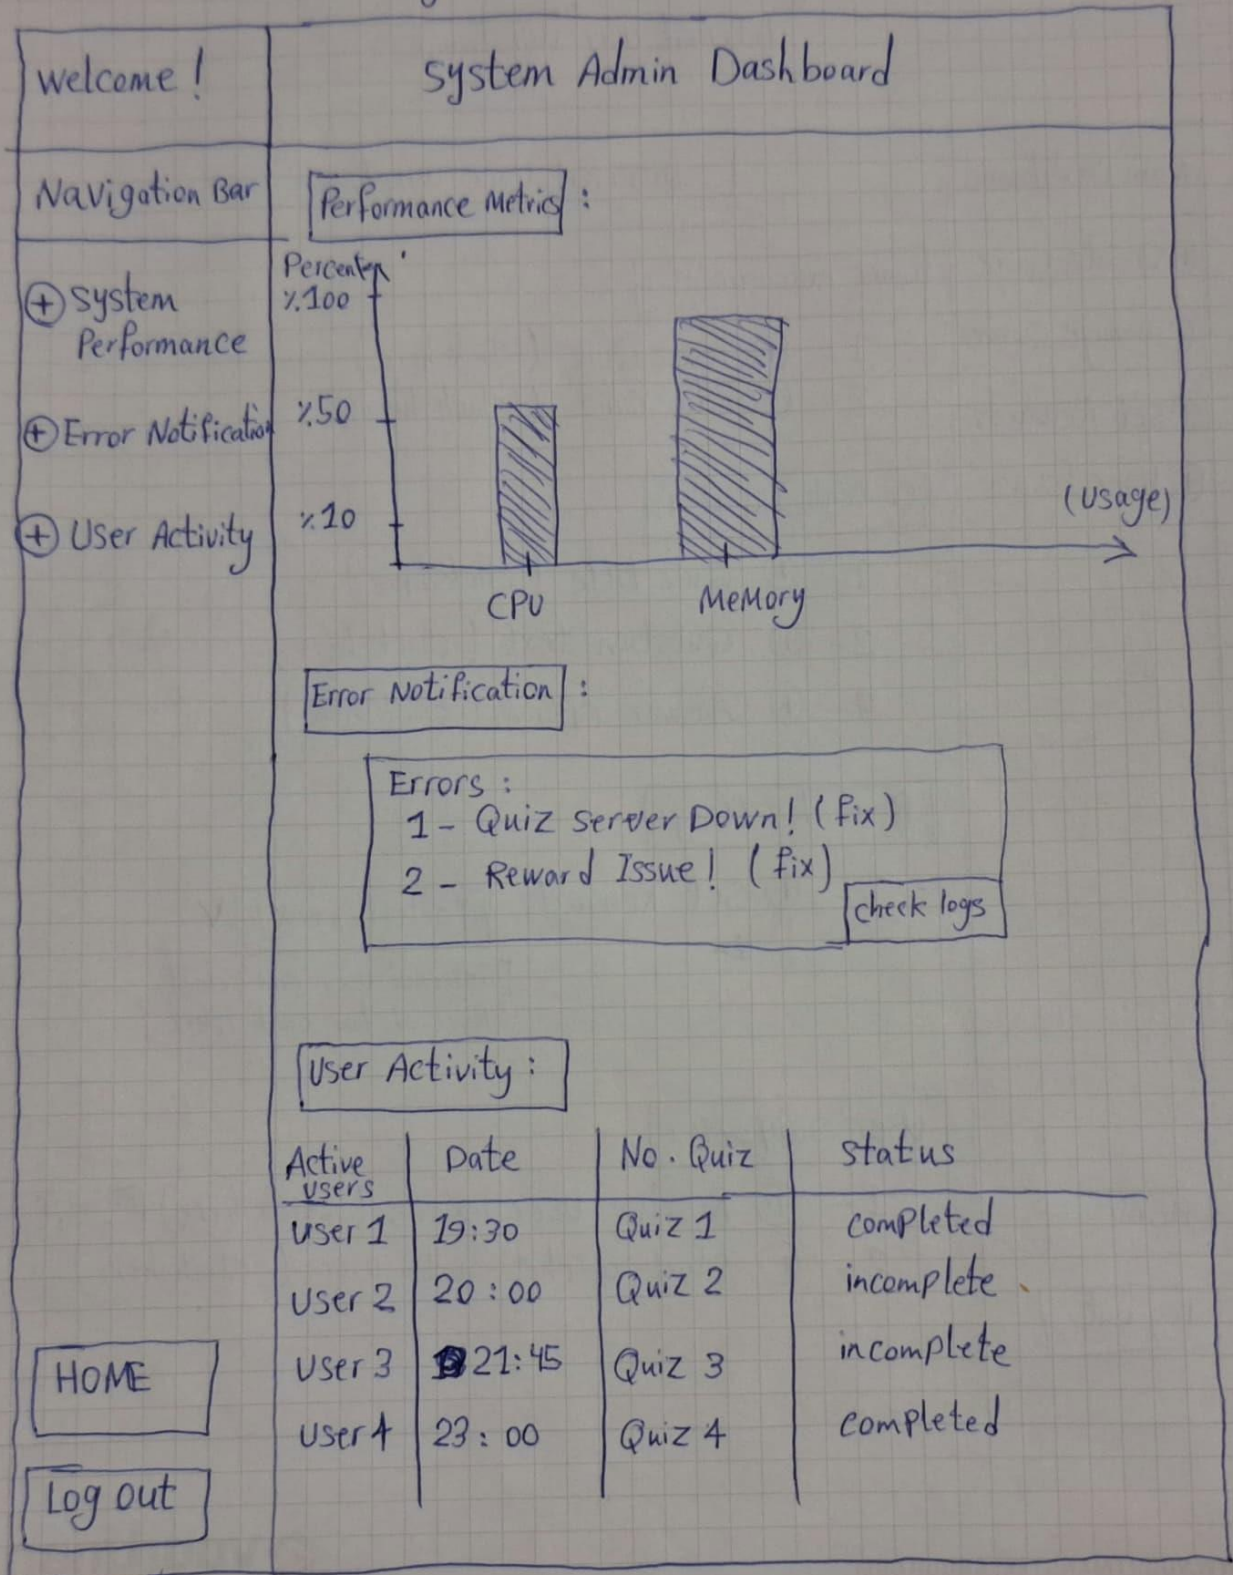 Welcome!
System Admin Dashboard
Navigation Bar
+ System
Performance
+ Error Notification
+ User Activity
HOME
Log out
Performance Metrics :
%100
%50
%10
CPU
Memory
(Usage)
Error Notification :
Errors :
1- Quiz Server Down! (fix)
2 - Reward Issue! (fix)
check logs
User Activity :
Active users | Date | No. Quiz | status
User 1 | 19:30 | Quiz 1 | completed
User 2 | 20:00 | Quiz 2 | incomplete
User 3 | 21:45 | Quiz 3 | incomplete
User 4 | 23:00 | Quiz 4 | completed